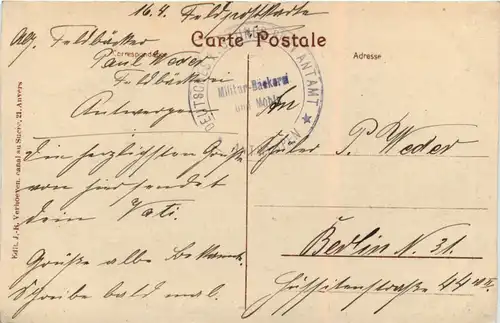 16.4. Feldpostkarte
Carte Postale
Correspondance
Adresse
Abs. Feldbäcker
Paul Weder
Feldbäckerei
Antwerpen
Die herzlichsten Grüße
von hier sendet
dein Vati.
Grüße alle Bekannt.
Schreibe bald mal.
Militär-Bäckerei
und Mehl
An
Schüler P. Weder
Berlin N. 31.
Hussitenstraße 44
Edit. J.-B. Verhoeven, canal au Sucre, 21, Anvers